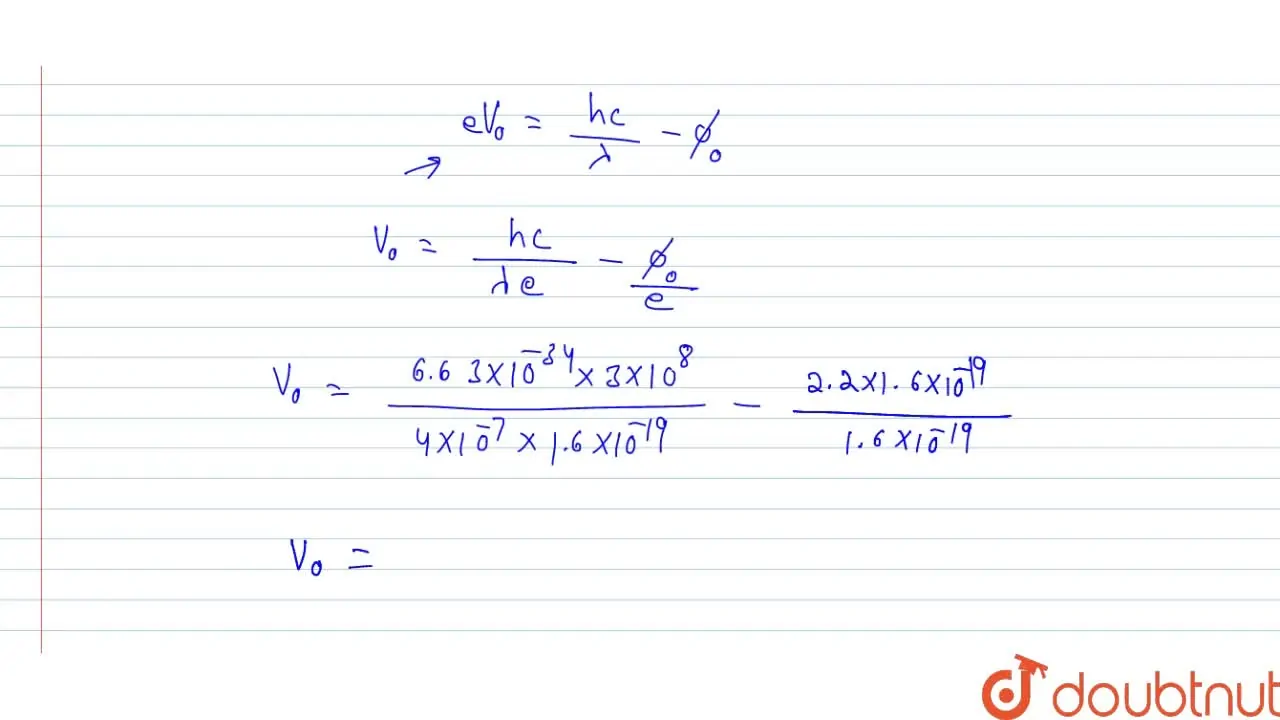 eV₀ = hc/λ - ϕ₀
→
V₀ = hc/λe - ϕ₀/e
V₀ = 6.63×10⁻³⁴×3×10⁸/4×10⁻⁷×1.6×10⁻¹⁹ - 2.2×1.6×10⁻¹⁹/1.6×10⁻¹⁹
V₀ =
doubtnut